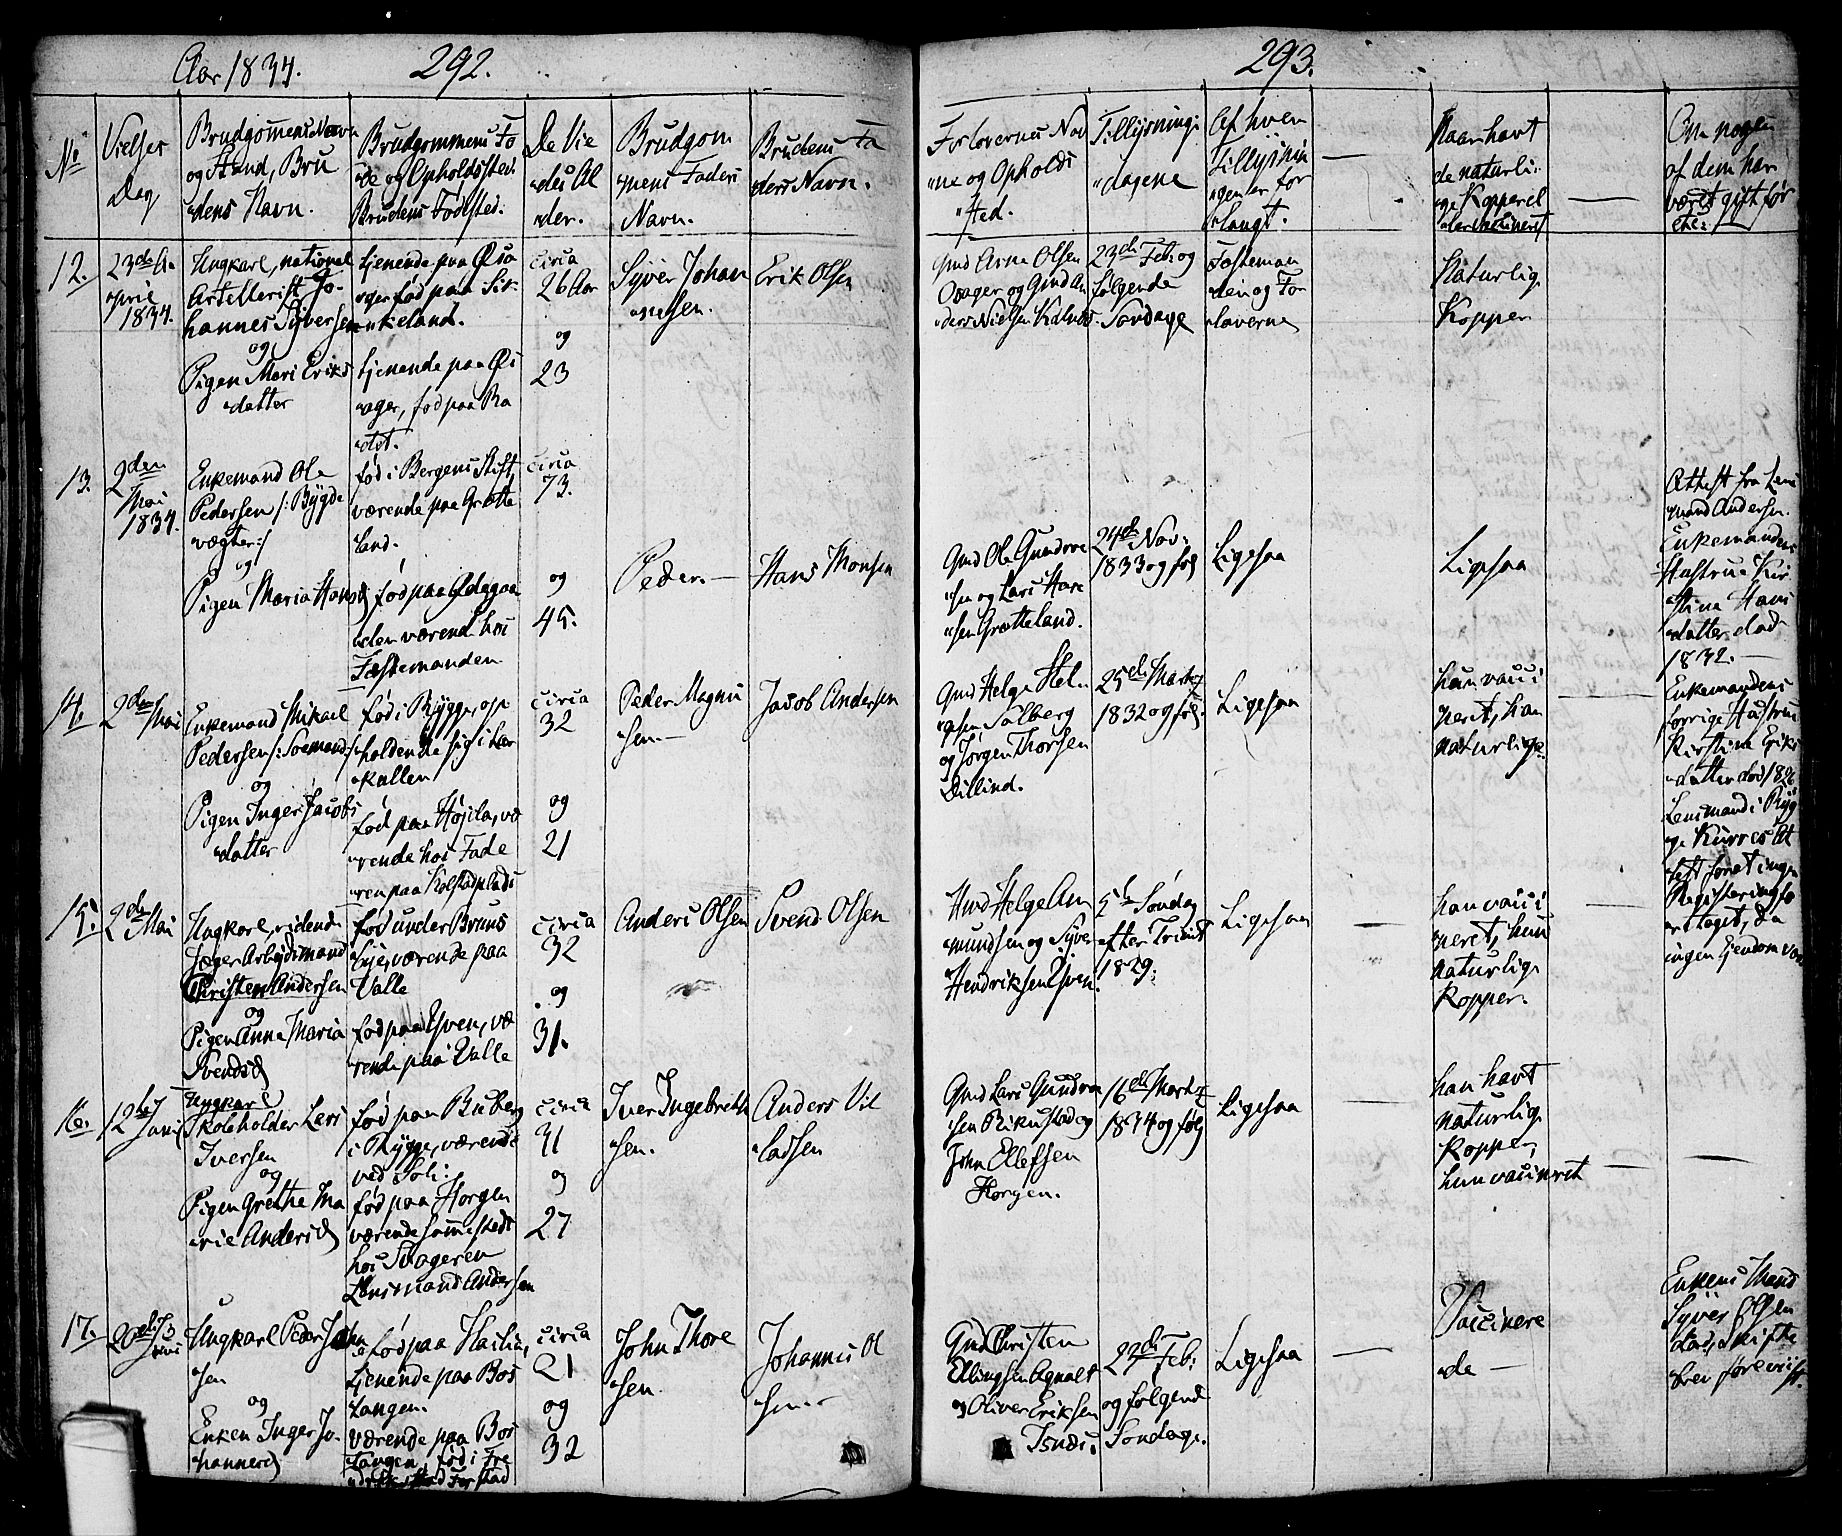 Aar 1834.
292.
No
Vielses
Dag
Brudgomens Navn
og Stand, Bru
dens Navn.
Brudgommens Fø
de og Opholdssted.
Brudens Fødsted.
De Vie
des Al
der.
Brudgom
mens Faders
Navn.
Brudens Fa
ders Navn.
12.
23de A
pril
1834.
Ungkarl, national
Artellerist Jo-
hannes Syversen
og
Pigen Mari Eriks
datter
tjenende paa Øi
ager fød paa Sik
keland.
tjenende paa Øi
ager, fød paa Ra
det.
circa
26 Aar
og
23
Syver Johan
nesen.
Erik Olsen
13.
2den
Mai
1834.
Enkemand Ole
Pedersen /: Bygde
vægter :/
og
Pigen Maria Hansd
fød i Bergens Stift,
værende paa Grøtte
land.
fød paa
den værend hos
Fæstemanden
circa
73.
og
45.
Peder —
Hans Monsen
14.
2den Mai
Enkemand Mikael
Pedersen /: Soemand :/
og
Pigen Inger Jacobs
datter
fød i Rygge, op
holdende sig i Lar
kullen
fød paa Højila, væ
rende hos Fade
ren paa Kolstadplads
circa
32
og
21
Peder Magnu
sen —
Jacob Andersen
15.
2den Mai
Ungkarl, ridend
Jæger Arbeidsmand
Christen Andersen
og
Pigen Anne Maria
Svendsd
fød under Bruns
bye, værende paa
Valle
fød paa Yven, væ
rende paa Valle
circa
32
og
31.
Anders Olsen
Svend Olsen
16.
12te Juni
Ungkarl
Skoleholder Lars
Iversen
og
Pigen Grethe Ma
rie Andersd
fød paa Buberg
i Rygge, værende
ved Soli:
fød paa Horgen
værende sammesteds
hos Svogeren
Lensmand Andersen
circa
31
og
27
Iver Ingebreth
sen.
Anders Vil
ladsen
17.
20de Juni
Ungkarl Peder John
sen
og
Enken Inger Jo
hannesd
fød paa Haslia,
tjenende paa Bos
tangen.
værende paa Bos
tangen, fød i Fre
drikstad Forstad
circa
21
og
32
John Thore
sen.
Johannes Ol
sen
293.
Forlovernes Nav
ne og Opholds
sted.
Tillysnings
dagene
Af hvem
Tillysnin
gen er for
langt.
—
Naar havt
de naturli
ge Kopper el
ler vaccineret
—
Om nogen
af dem har
været gift før
etc:
Gmd Arne Olsen
Oxager og Gmd An
ders Nielsen Kalnæs
23de Feb: og
følgende
Søndage
Fæsteman
den og For
loverne
Naturlig
Kopper
Gmd Ole Gundrou
sen og Lars Han
sen Grøtteland.
24de Nov:
1833 og føl
Ligesaa
Ligesaa
Attest fra Lens
mand Andersen.
Enkemandens
Hustrue Kir
stine Hans
datter død
1832. —
Gmd Helge Hel
gesen Solberg
og Jørgen Thorsen
Dillind.
25de Martz
1832 og føl.
Ligesaa
hun vacci
neret, han
naturlige
—
Enkemandens
forrige Hustrue
Kirstine Eriks
datter død 1826
Lensmand i Ryg
ge Kurres At
test foret ingen
Registering fo
retaget, da
ingen Ejendom var
Gmd Helge Am
mundsen og Syver
Hendriksen Yven.
5te Søndag
efter Trinit
1829.
Ligesaa
—
han vacci
neret, hun
naturlige
Kopper.
—
Gmd Lars Gundrou
sen Rikustad og
John Ellefsen
Horgen.
16de Martz
1834 og følg
Ligesaa
—
han havt
naturlig
Kopper,
hun vaccineret
—
—
Gmd Christen
Ellingsen Agnalt
og Oliver Eriksen
Isnæs.
23de Feb:
og følgend
Søndage.
Ligesaa
—
Vaccinere
de —
Enkens Mand
Syver Olsen
død, Skifte
brev forevist.